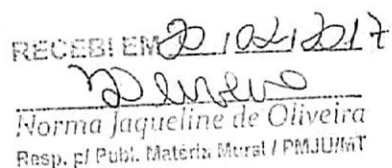 RECEBI EM 20/02/2017
Norma Jaqueline de Oliveira
Resp. p/ Publ. Matéria Mural / PMJU/MT